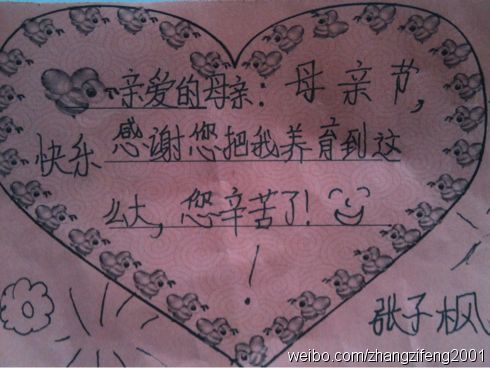 亲爱的母亲：母亲节，
快乐感谢您把我养育到这
么大，您辛苦了！
！
张子枫
weibo.com/zhangzifeng2001